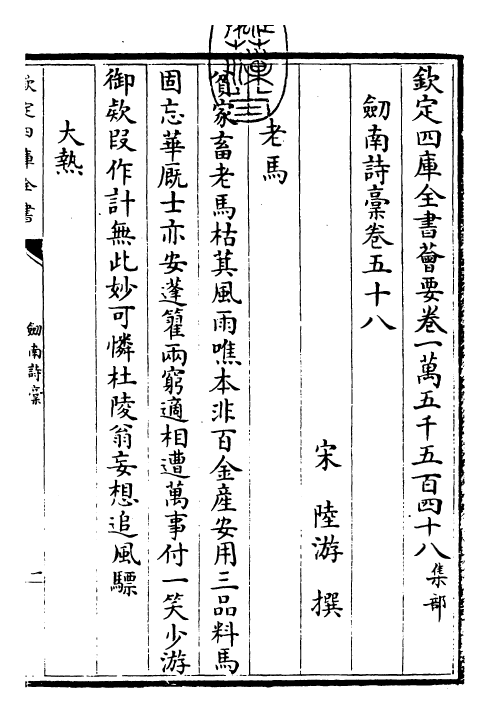 欽定四庫全書薈要卷一萬五千五百四十八集部
劒南詩稾卷五十八
宋 陸游 撰
老馬
貧家畜老馬枯萁風雨噍本非百金産安用三品料馬
固忘華厩士亦安蓬藋兩窮適相遭萬事付一笑少游
御欵段作計無此妙可憐杜陵翁妄想追風驃
大熱
欽定四庫全書
劒南詩稾